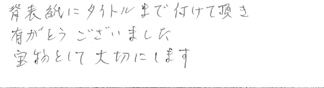 背表紙にタイトルまで付けて頂き
有がとうございました
宝物として大切にします